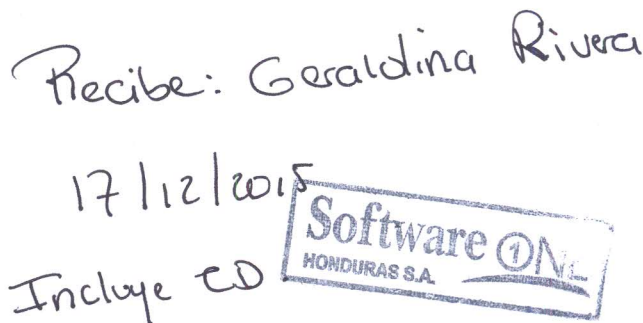 Recibe: Geraldina Rivera
17/12/2015
Software ONE
HONDURAS S.A.
Incluye CD